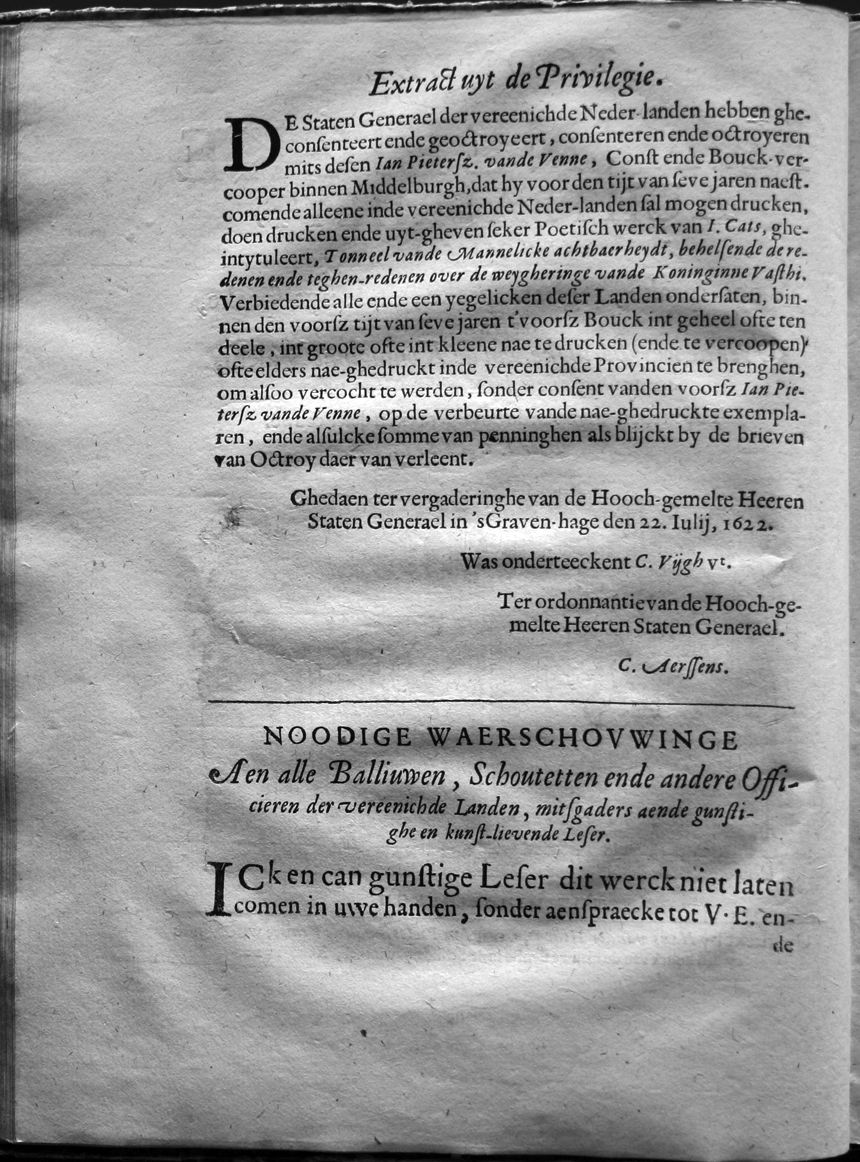 Extract uyt de Privilegie.
DE Staten Generael der vereenichde Neder-landen hebben ghe-
conſenteert ende geoctroyeert, conſenteren ende octroyeren
mits deſen Ian Pieterſz. vande Venne, Conſt ende Bouck-ver-
cooper binnen Middelburgh, dat hy voor den tijt van ſeve jaren naeſt-
comende alleene inde vereenichde Neder-landen ſal mogen drucken,
doen drucken ende uyt-gheven ſeker Poetiſch werck van I. Cats, ghe-
intytuleert, Tonneel vande Mannelicke achtbaerheydt, behelſende de re-
denen ende teghen-redenen over de weygheringe vande Koninginne Vaſthi.
Verbiedende alle ende een yegelicken deſer Landen onderſaten, bin-
nen den voorſz tijt van ſeve jaren t'voorſz Bouck int geheel ofte ten
deele, int groote ofte int kleene nae te drucken (ende te vercoopen)
ofte elders nae-ghedruckt inde vereenichde Provincien te brenghen,
om alſoo vercocht te werden, ſonder conſent vanden voorſz Ian Pie-
terſz vande Venne, op de verbeurte vande nae-ghedruckte exempla-
ren, ende alſulcke ſomme van penninghen als blijckt by de brieven
van Octroy daer van verleent.
Ghedaen ter vergaderinghe van de Hooch-gemelte Heeren
Staten Generael in 'sGraven-hage den 22. Iulij, 1622.
Was onderteeckent C. Vijgh vt.
Ter ordonnantie van de Hooch-ge-
melte Heeren Staten Generael.
C. Aerſſens.
NOODIGE WAERSCHOVWINGE
Aen alle Balliuwen, Schoutetten ende andere Offi-
cieren der vereenichde Landen, mitſgaders aende gunſti-
ghe en kunſt-lievende Leſer.
ICk en can gunſtige Leſer dit werck niet laten
comen in uwe handen, ſonder aenſpraecke tot V. E. en-
de